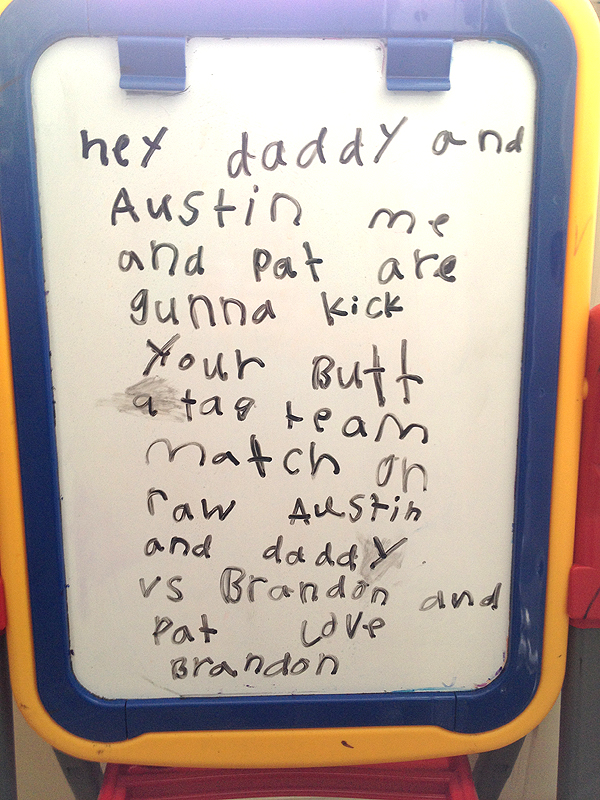 hey daddy and
Austin me
and pat are
gunna kick
Your Butt
a tag team
match on
raw Austin
and daddy
vs Brandon and
pat Love
Brandon